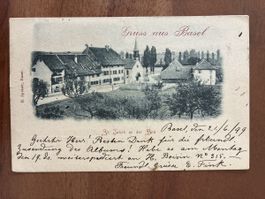 Gruss aus Basel
St. Jakob a. der Birs
Basel, den 21/6/99
Geehrter Herr! Besten Dank für die
Zusendung des Albums! Habe es am Montag
den 19. ds. an H. No 315.
Freundl. Grüsse E. Funk.